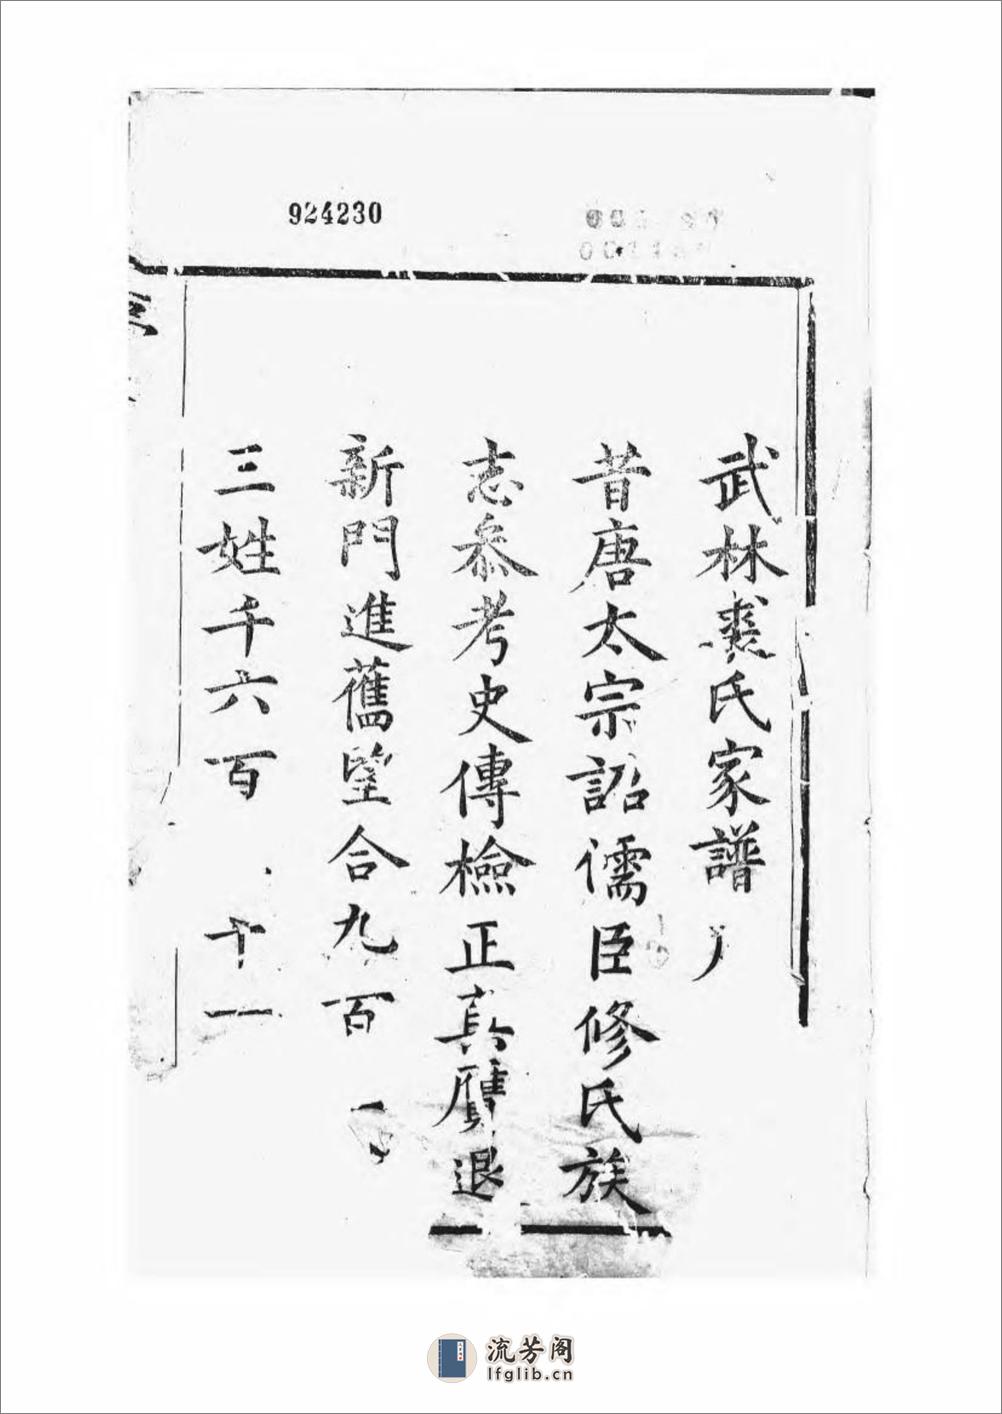 924230
武林裘氏家譜
昔唐太宗詔儒臣修氏族
志叅考史傳檢正真贗退
新門進舊望合九百
三姓千六百 十一
流芳阁
lfglib.cn